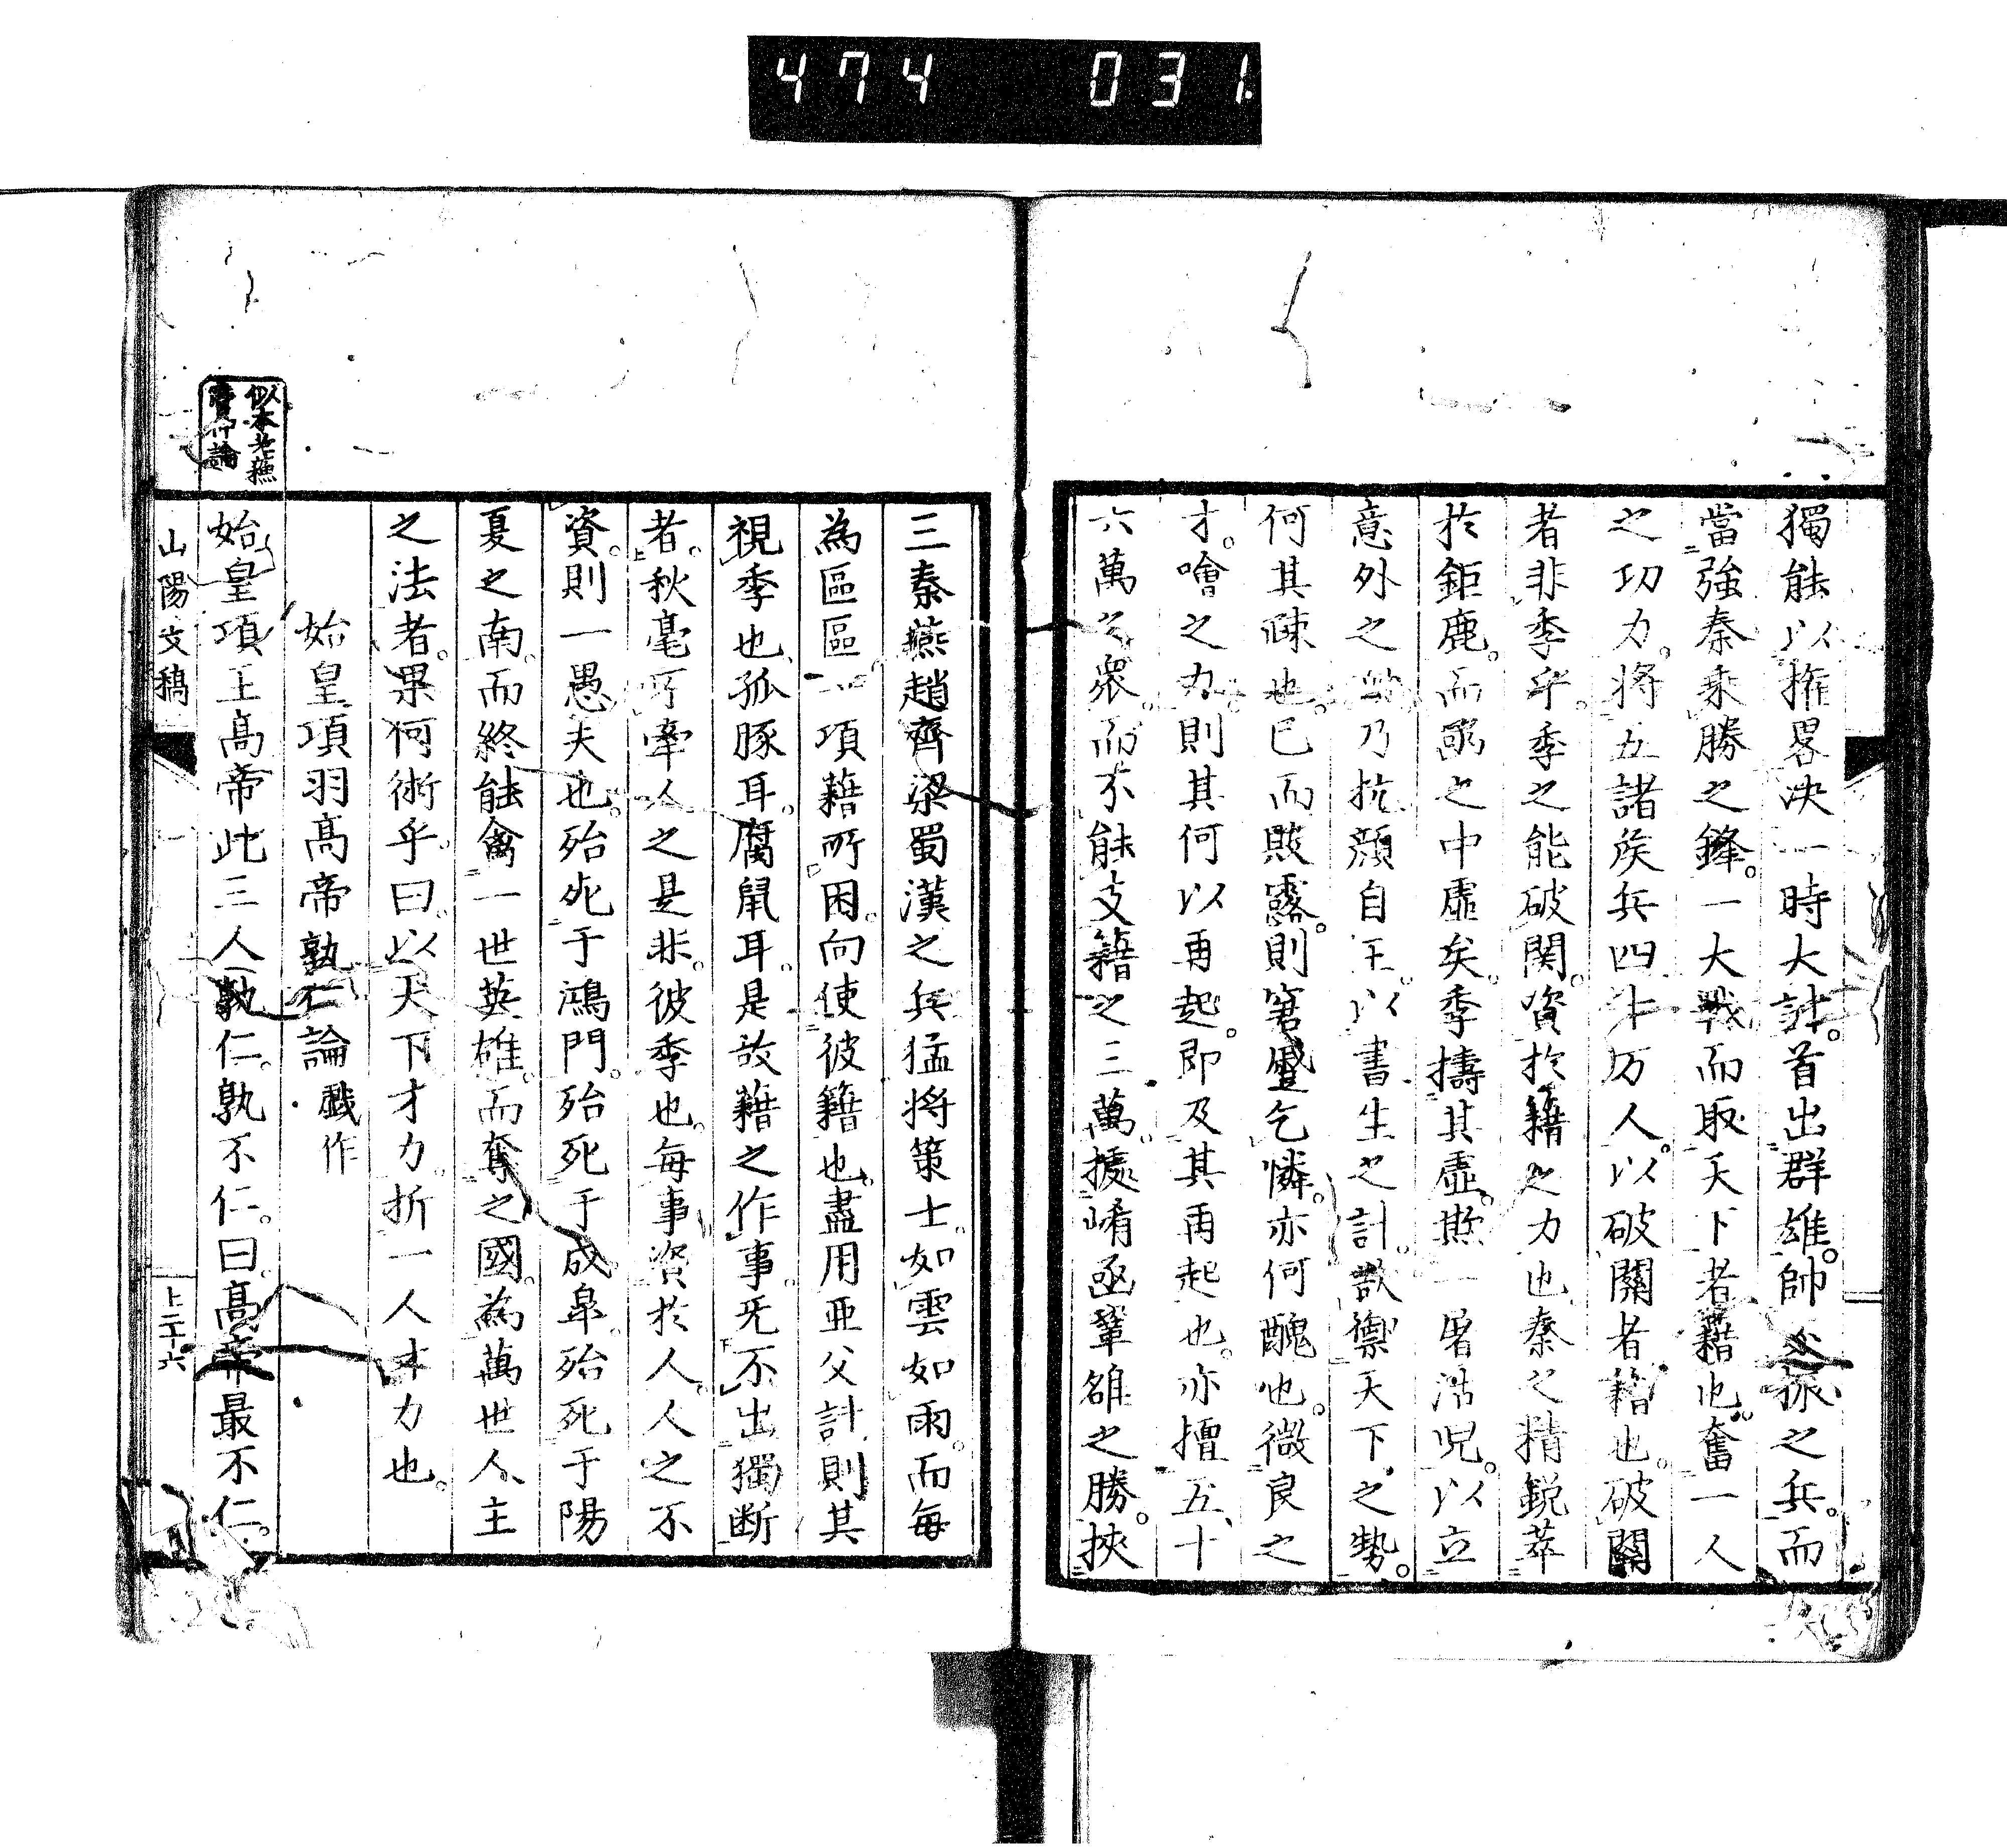 474 031
獨能以権畧决一時大計。首出群雄。帥 孤之兵。而
當強秦乗勝之鋒。一大戰而取天下者籍也。奮一人
之功力。將五諸矦兵四十万人。以破關者籍也。破關
者非季乎。季之能破関。資於籍之力也秦之精鋭萃
於鉅鹿。而 之中虛矣。季擣其虛。欺一屠沽児。以立
意外之 乃抗顔自王。以書生之計。欲禦天下之勢。
何其疎也。已而敗露。則窘蹙乞憐。亦何醜也。微良之
才。噲之力。則其何以再起。即及其再起也。亦擅五十
六萬之衆。而不能支籍之三萬。據崤函鞏雒之勝。挾
三秦燕趙齊梁蜀漢之兵猛将策士。如雲如雨。而每
為區區一項籍所困。向使彼籍也。盡用亜父計則其
視季也。孤豚耳。腐鼠耳。是故籍之作事。旡不出獨断
者。秋毫可牽人之是非。彼季也。毎事資於人。人之不
資。則一愚夫也。殆死于鴻門。殆死于成皐。殆死于陽
夏之南。而終能禽一世英雄。而奪之國。為萬世人主
之法者。果何術乎。曰。以天下才力。折一人才力也。
始皇項羽髙帝孰仁論 戯作
似本老蘓
管仲論
始皇項王髙帝此三人孰仁。孰不仁。曰。髙帝最不仁。
山陽文稿
上二十六